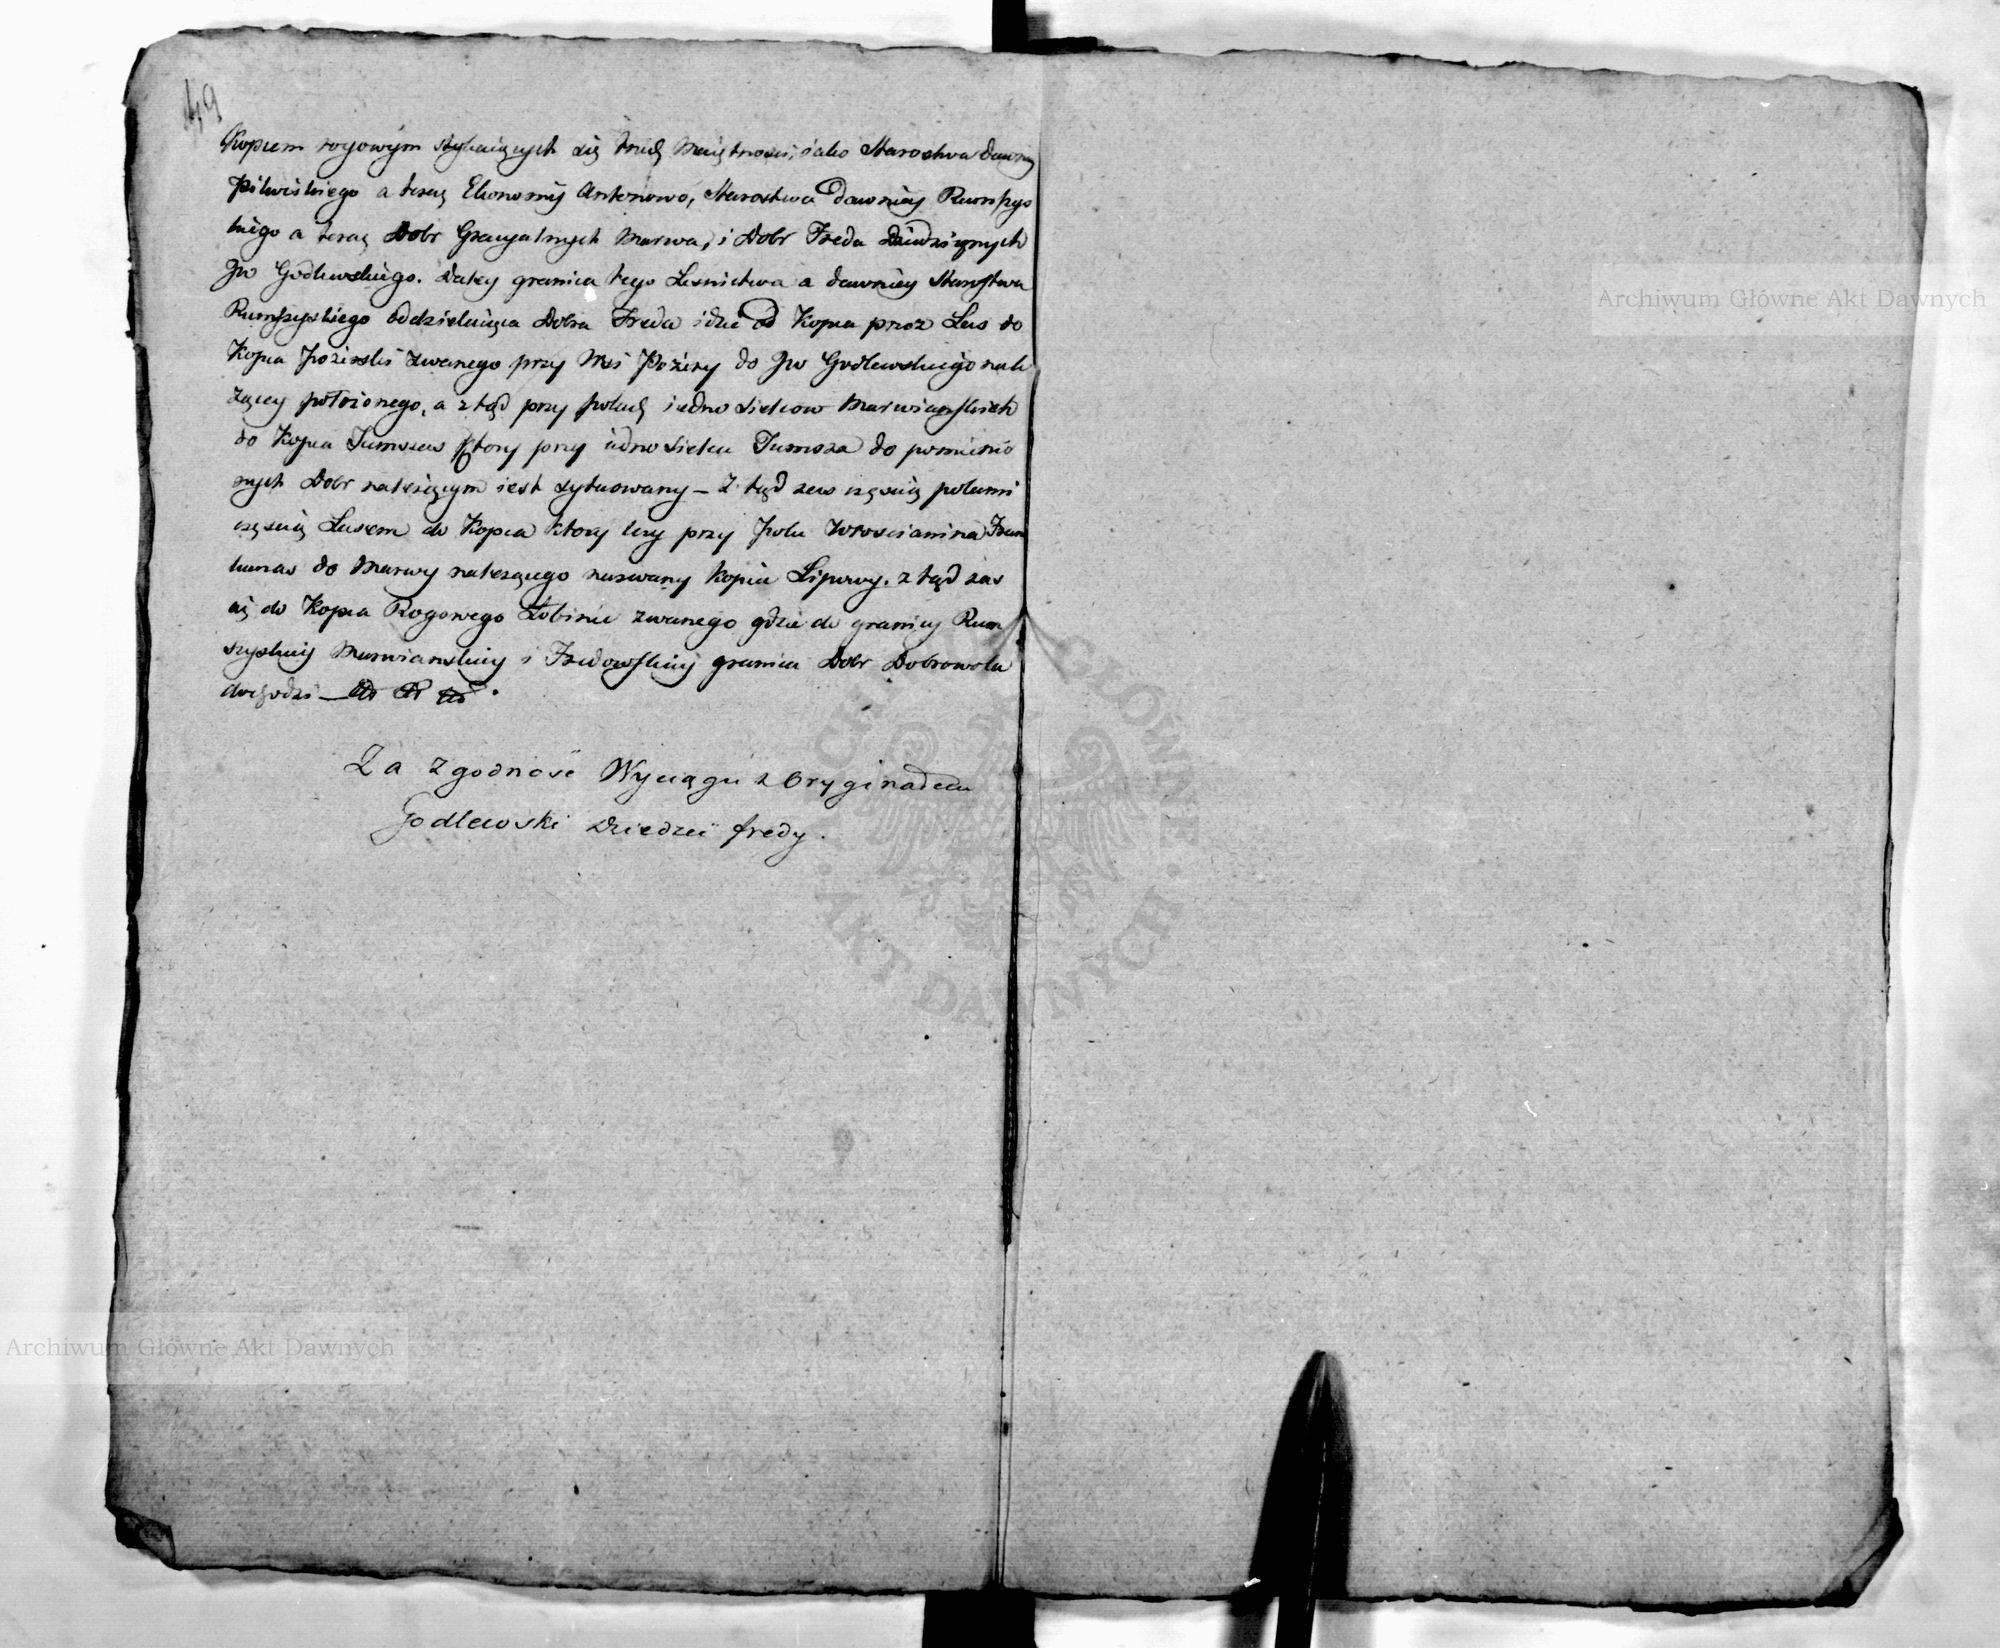 49
Kopcem rogowym stykaiących się trzech Maiętnosci, iako Starostwa dawniey
Pilwiskiego a teraz Ekonomij Antonowo, Starostwa dawniey Rumszys
kiego a teraz Dobr Gracyalnych Marwa, i Dobr Freda Dziedzicznych
JW Godlewskiego. Daley granica tego Lesnictwa a dawniey Starostwa
Rumszyskiego oddzielaiąca Dobra Freda idzie od Kopca przez Las do
Kopca zwanego przy Wsi Pożery do JW Godlewskiego nale
żącey położonego, a ztąd przy polach iednosielcow Marwianskich
do Kopca Jumszas ktory przy iednosielcu Jumsza do pomienio
nych Dobr należącym iest sytuowany — Z tąd zas częscią polami
częscią Lasem do Kopca ktory leży przy Polu Włoscianina
do Marwy należącego nazwany Kopiec Lipowy. z tąd zas
aż do Kopca Rogowego zwanego gdzie do granicy Rum
szyskiej Marwianskiej i Fredowskiej granica Dobr Dobrowola
dochodzi —
Za zgodność Wyciągu z Oryginałem
Godlewski Dziedzic fredy.
Archiwum Główne Akt Dawnych
Archiwum Główne Akt Dawnych
AKT DAWNYCH